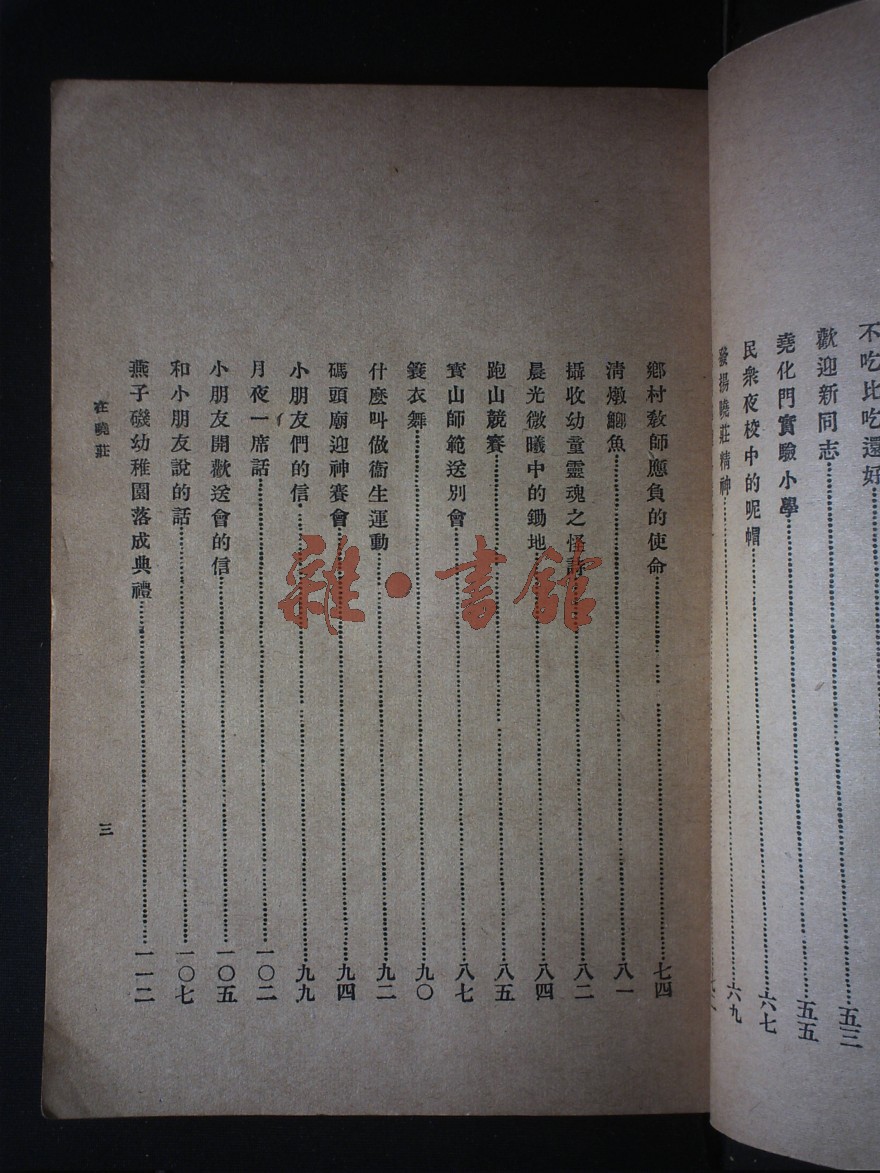 不吃比吃還好
歡迎新同志……五三
堯化門實驗小學……五五
民衆夜校中的呢帽……六七
發揚曉莊精神……六九
鄉村教師應負的使命……七四
清燉鯽魚……八一
攝收幼童靈魂之怪……八二
晨光微曦中的鋤地……八四
跑山競賽……八五
寳山師範送別會……八七
簑衣舞……九〇
什麽叫做衞生運動……九二
碼頭廟迎神賽會……九四
小朋友們的信……九九
月夜一席話……一〇二
小朋友開歡送會的信……一〇五
和小朋友說的話……一〇七
燕子磯幼稚園落成典禮……一一二
在曉莊
三
雜·書館